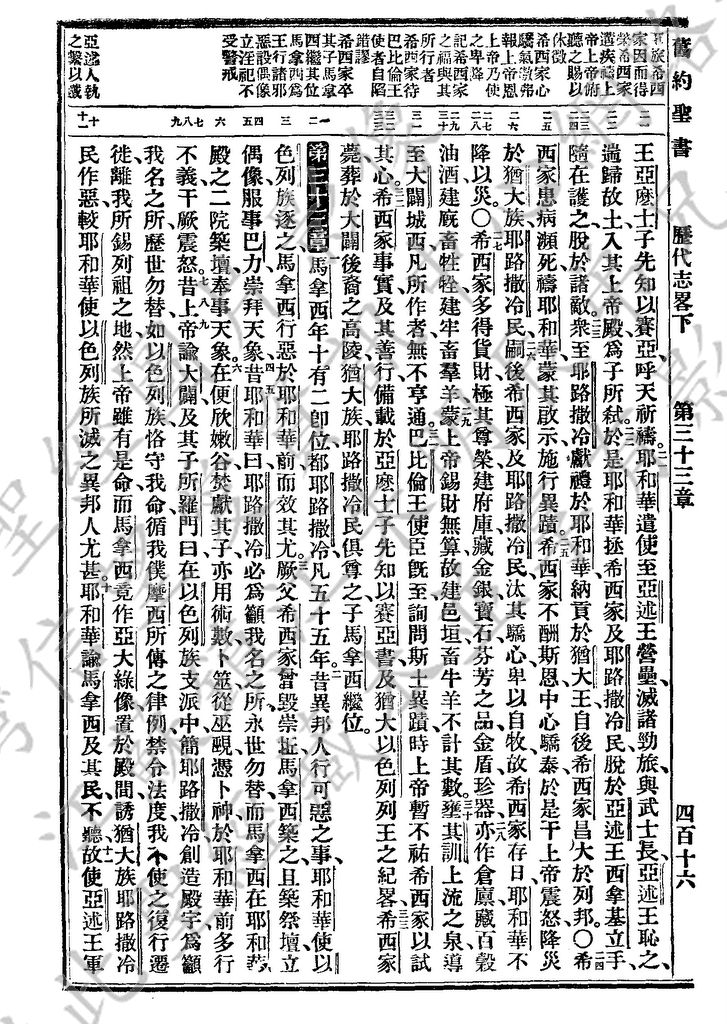 舊約聖書 歷代志畧下 第三十三章 四百十六
家因而得
榮希西家
遘疾禱上
帝上帝俯
聽之賜以
休徵
希西家心
驕氣傲弗
報上帝恩
上帝乃使
之卑降
記希西家
之福與其
所行者
希西家待
巴比倫王
使者自陷
錯謬
希西家卒
其子馬拿
西繼其位
馬拿西爲
王行諸邪
惡設偶像
立淫祀不
受警戒
亞述人執
之繫以
王亞麽士子先知以賽亞呼天祈禱、耶和華遣使至亞述王營壘、滅諸勁旅、與武士長、亞述王恥之、
遄歸故土、入其上帝殿、爲子所弒、於是耶和華拯希西家及耶路撒冷民、脫於亞述王西拿基立手、
隨在護之、脫於諸敵、衆至耶路撒冷、獻禮於耶和華、納貢於猶大王、自後希西家昌大於列邦。〇希
西家患病瀕死、禱耶和華、蒙其啟示、施行異蹟、希西家不酬斯恩、中心驕泰、於是干上帝震怒、降災
於猶大族、耶路撒冷民、嗣後希西家及耶路撒冷民、汰其驕心、卑以自牧、故希西家存日、耶和華不
降以災。〇希西家多得貨財、極其尊榮、建府庫、藏金銀寶石、芬芳之品、金盾珍器、亦作倉廪、藏百穀
油酒、建廐畜牲牷、建牢畜羣羊、蒙上帝錫財無算、故建邑垣、畜牛羊、不計其數、壅其訓上流之泉、導
至大闢城西、凡所作者、無不亨通、巴比倫王使臣旣至、詢問斯土異蹟、時上帝暫不祐希西家、以試
其心、希西家事實、及其善行、備載於亞麽士子先知以賽亞書、及猶大以色列王之紀畧、希西家
薨、葬於大闢後裔之高陵、猶大族、耶路撒冷民俱尊之、子馬拿西繼位。
第三十三章 馬拿西年十有二卽位、都耶路撒冷、凡五十五年、昔異邦人行可惡之事、耶和華使以
色列族逐之、馬拿西行惡於耶和華前、而效其尤、厥父希西家曾毀崇坵、馬拿西築之、且築祭壇、立
偶像、服事巴力、崇拜天象、昔耶和華曰、耶路撒冷必爲籲我名之所、永世勿替、而馬拿西在耶和華
殿之二院、築壇奉事天象、在便欣嫩谷、焚獻其子、亦用術數、卜筮、從巫覡、憑卜神、於耶和華前多行
不義、干厥震怒、昔上帝諭大闢、及其子所羅門曰、在以色列族支派中、簡耶路撒冷、創造殿宇、爲籲
我名之所、歷世勿替、如以色列族恪守我命、循我僕摩西所傳之律例、禁令法度、我不使之復行遷
徙、離我所錫列祖之地、然上帝雖有是命、而馬拿西竟作亞大綠像、置於殿間、誘猶大族、耶路撒冷
民作惡、較耶和華使以色列族所滅之異邦人尤甚、耶和華諭馬拿西及其民、不聽、故使亞述王軍